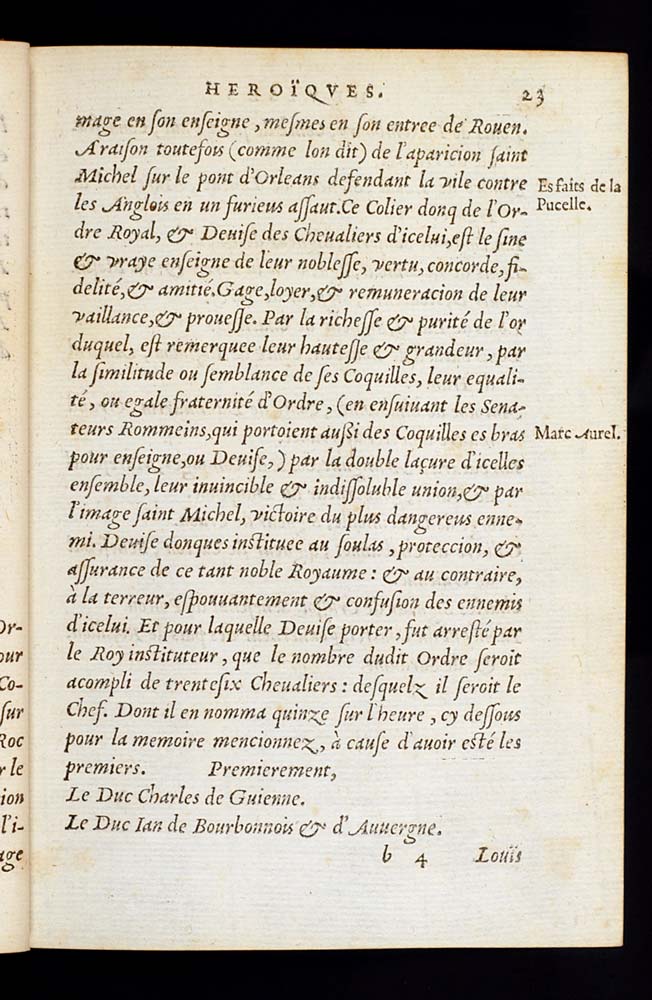 HEROÏQVES. 23
mage en son enseigne, mesmes en son entree de Rouen.
A raison toutefois (comme lon dit) de l'aparicion saint
Michel sur le pont d'Orleans defendant la vile contre
Es faits de la
les Anglois en un furieus assaut. Ce Colier donq de l'Or-
Pucelle.
dre Royal, & Deuise des Cheualiers d'icelui, est le sine
& vraye enseigne de leur noblesse, vertu, concorde, fi-
delité, & amitié. Gage, loyer, & remuneracion de leur
vaillance, & prouesse. Par la richesse & purité de l'or
duquel, est remerquee leur hautesse & grandeur, par
la similitude ou semblance de ses Coquilles, leur equali-
té, ou egale fraternité d'Ordre, (en ensuiuant les Sena-
teurs Rommeins, qui portoient außi des Coquilles es bras
Marc Aurel.
pour enseigne, ou Deuise,) par la double laçure d'icelles
ensemble, leur inuincible & indissoluble union, & par
l'image saint Michel, victoire du plus dangereus enne-
mi. Deuise donques instituee au soulas, proteccion, &
assurance de ce tant noble Royaume: & au contraire,
à la terreur, espouuantement & confusion des ennemis
d'icelui. Et pour laquelle Deuise porter, fut arresté par
le Roy instituteur, que le nombre dudit Ordre seroit
acompli de trentesix Cheualiers: desquelz il seroit le
Chef. Dont il en nomma quinze sur l'heure, cy dessous
pour la memoire mencionnez, à cause d'auoir esté les
premiers. Premierement,
Le Duc Charles de Guienne.
Le Duc Ian de Bourbonnois & d'Auuergne.
b 4 Louïs
Or-
our
Co-
sur
Roc
r le
ion
l'i-
age